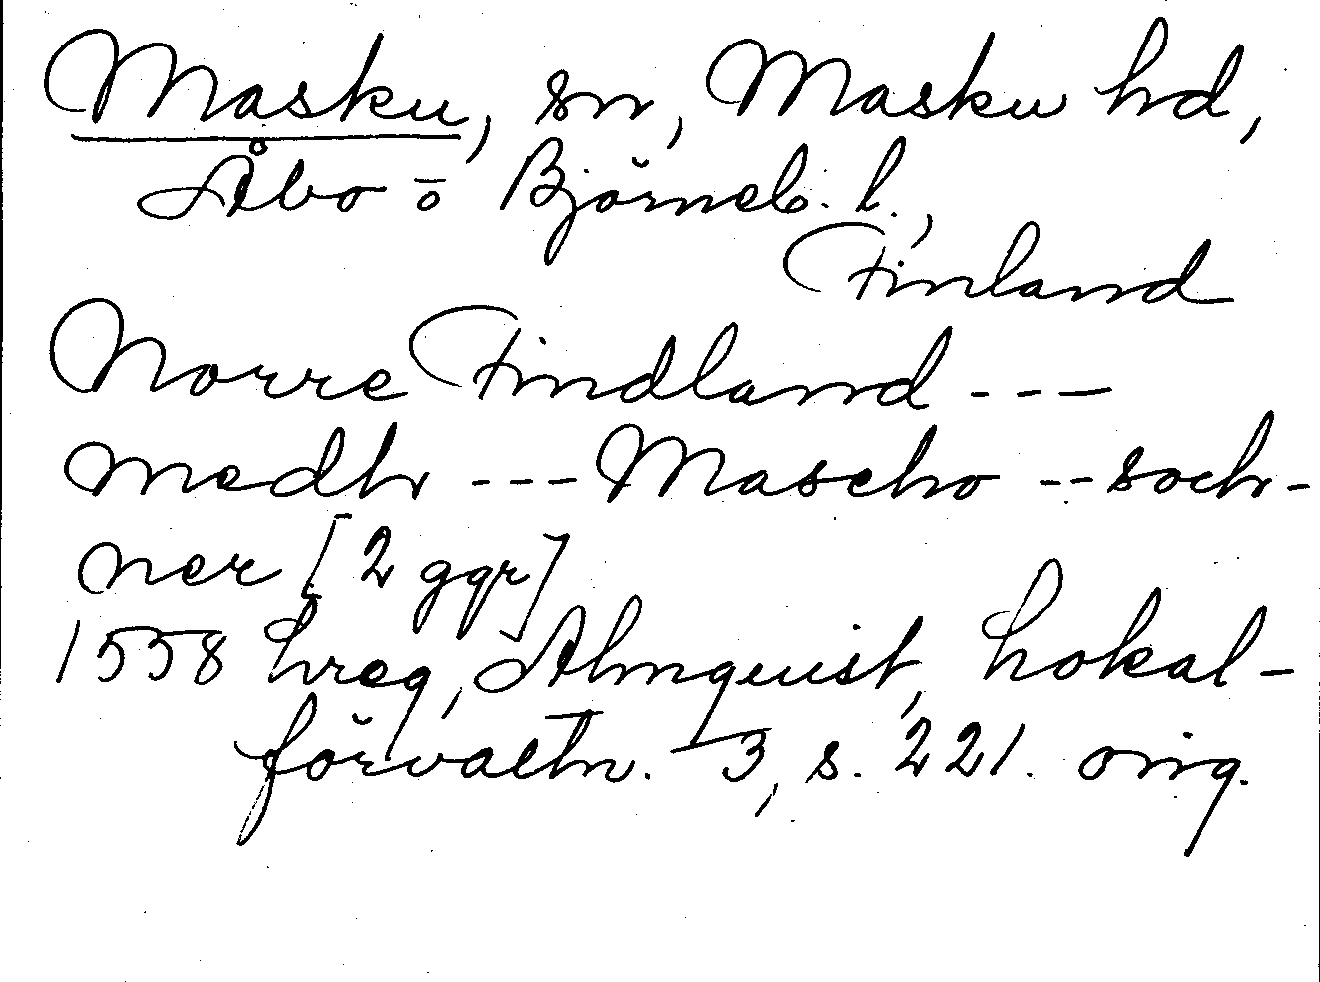 Masku, sn, Masku hd,
Åbo o Björneb. l.,
Finland
Norre Findland ---
medh --- Mascho -- soch-
ner [2 ggr]
1558 hreg, Almquist, Lokal-
förvaltn. 3, s. 221. orig.